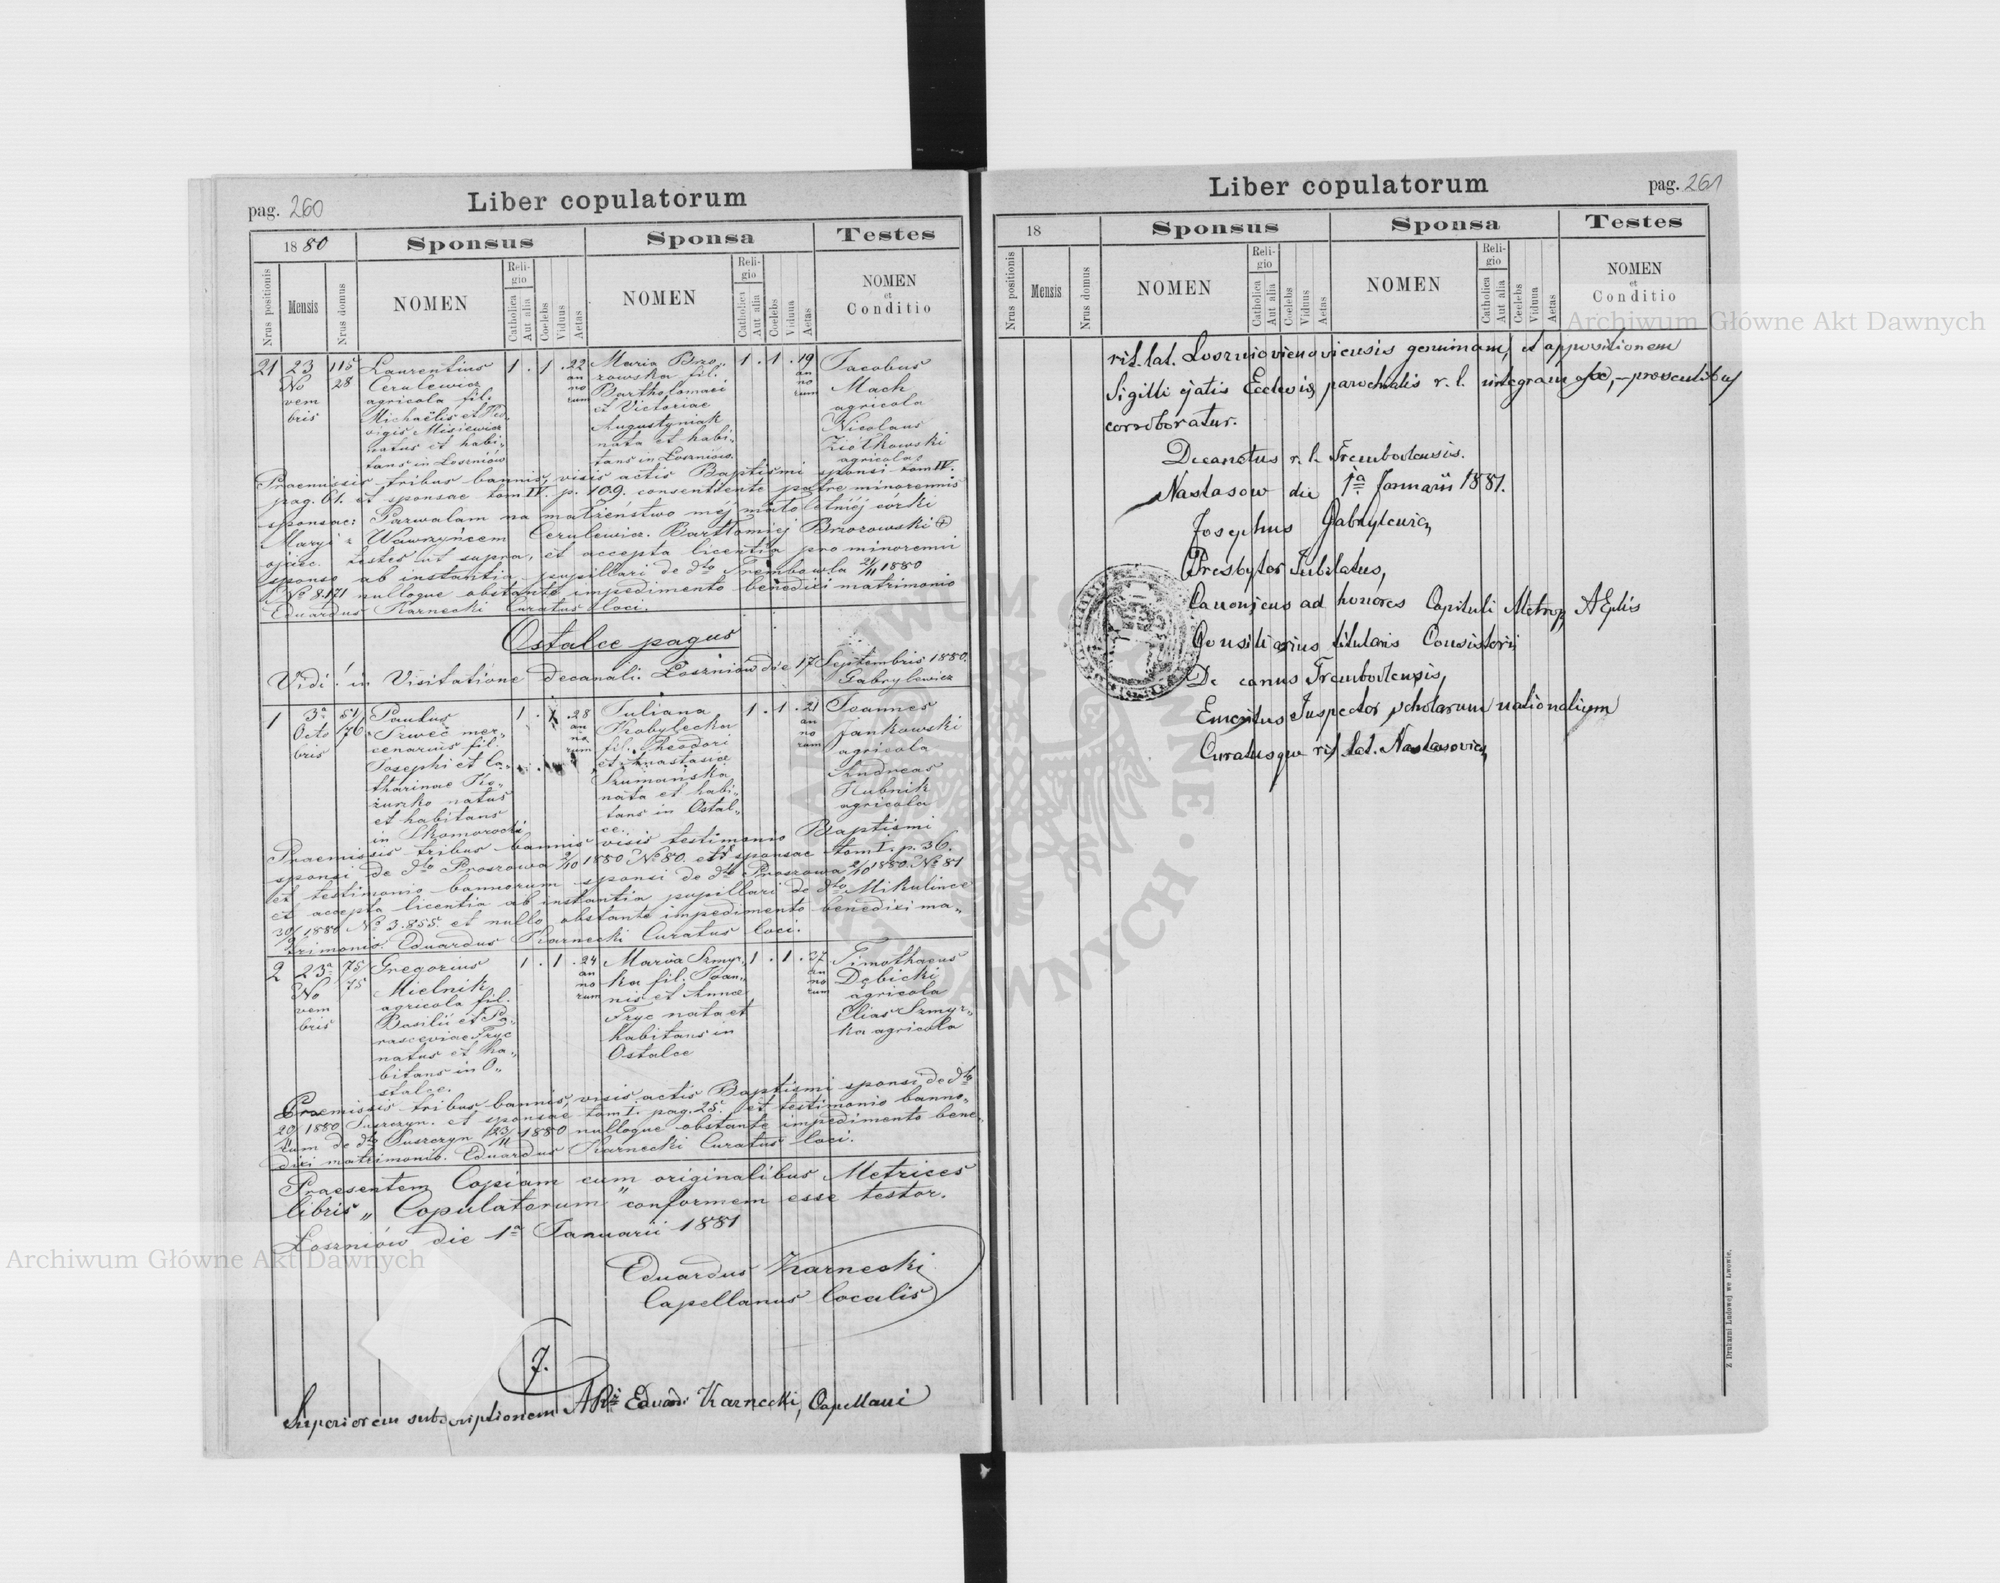 pag. 260
Liber copulatorum
1880
Sponsus
Sponsa
Testes
Nrus positionis
Mensis
Nrus domus
NOMEN
Religio
Catholica
Aut alia
Coelebs
Viduus
Aetas
NOMEN
Religio
Catholica
Aut alia
Coelebs
Vidua
Aetas
NOMEN
et
Conditio
21 23 115 Laurentius 1 . 1 . 22 Maria Brzo- 1 . 1 . 19 Jacobus
No 28 Cerulewicz an zowska fil. an Mach
vem agricola fil. no Bartholomaei no agricola
bris Michaëlis et Hed- rum et Victoriae rum Nicolaus
vigis Misiewicz Augustyniak Ziółkowski
natus et habi- nata et habi- agricolae
tans in Łoszniów tans in Łoszniów.
Praemissis tribus bannis, visis actis Baptismi sponsi tom IV.
pag. 61. et sponsae tom IV. p. 109. consentiente patre minorennis
sponsae: Pozwalam na małżeństwo mej małoletniéj córki
Maryi z Wawrzyńcem Cerulewicz. Bartłomiej Brzozowski +
ojciec. testes ut supra, et accepta licentia pro minorenni
sponso ab instantia pupillari de dto Trembowla 21/11 1880
No 8.171 nulloque obstante impedimento benedixi matrimonio
Eduardus Karnecki Curatus loci.
Ostalce pagus
Vidi in Visitatione decanali. Łoszniów die 17 Septembris 1880.
Gabrylewicz
1 3a 51/ Paulus 1 . 1 . 28 Juliana 1 . 1 . 21 Joannes
Octo 76 Szweć mer- an Kobylecka an Jankowski
bris cenarius fil. no fil. Theodori no agricola
Josephi et Ca- rum et Anastasiae rum Andreas
tharinae Szumańska Hubnik
natus nata et habi- agricola
et habitans tans in Ostal-
in Skomorochi ce.
Praemissis tribus bannis visis testimonio Baptismi
sponsi de dto Proszowa 2/10 1880 No 80. et sponsae tom I. p. 36.
et testimonio bannorum sponsi de dto Proszowa 2/10 1880. No 81
et accepta licentia ab instantia pupillari de dto Mikulince
30/9 1880 No 3.855. et nullo obstante impedimento benedixi ma-
trimonio. Eduardus Karnecki Curatus loci.
2 23a 75/ Gregorius 1 . 1 . 24 Maria Szmyr- 1 . 1 . 27 Timothaeus
No 75 Mielnik an ka fil. Joan- an Dębicki
vem agricola fil. no nis et Annae no agricola
bris Basilii et Pa- rum Fryc nata et rum Elias Szmyr-
rasceviae Fryc habitans in ka agricola
natus et ha- Ostalce
bitans in O-
stalce.
Praemissis tribus bannis, visis actis Baptismi sponsi de dto
20/11 1880 Suszczyn. et sponsae tom I. pag. 25. et testimonio banno-
rum de dto Suszczyn 23/11 1880 nulloque obstante impedimento bene-
dixi matrimonio. Eduardus Karnecki Curatus loci.
Praesentem Copiam cum originalibus Metrices
libris „Copulatorum" conformem esse testor.
Łoszniów die 1a Januarii 1881
Eduardus Karnecki
Capellanus localis
7.
Superiorem subscriptionem Eduardi Karnecki, Capellani
Liber copulatorum
pag. 261
18
Sponsus
Sponsa
Testes
Nrus positionis
Mensis
Nrus domus
NOMEN
Religio
Catholica
Aut alia
Coelebs
Viduus
Aetas
NOMEN
Religio
Catholica
Aut alia
Coelebs
Vidua
Aetas
NOMEN
et
Conditio
rit. lat. genuinam, et appositionem
Sigilli Ecclesiae parochialis r. l. integram
corroboratur.
Decanatus r. l. Trembowlensis.
Nastasow die 1a Januarii 1881.
Josephus Gabrylewicz
Presbyter Jubilatus,
Canonicus ad honores Capituli Metrop.
Consiliarius titularis Consistorii
Decanus Trembowlensis,
Emeritus Inspector scholarum nationalium
Curatusque rit. lat. Nastasovien.
Z Drukarni Ludowej we Lwowie.
Archiwum Główne Akt Dawnych
Archiwum Główne Akt Dawnych